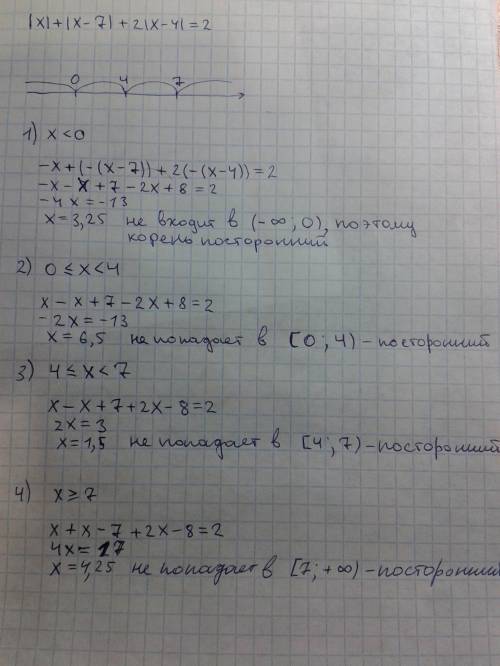 |x|+|x-7|+2|x-4|=2
0 4 7
1) x<0
-x+(-(x-7))+2(-(x-4))=2
-x-x+7-2x+8=2
-4x=-13
x=3,25 не входит в (-∞; 0), поэтому
корень посторонний
2) 0≤x<4
x-x+7-2x+8=2
-2x=-13
x=6,5 не попадает в [0; 4)-посторонний
3) 4≤x<7
x-x+7+2x-8=2
2x=3
x=1,5 не попадает в [4; 7)-посторонний
4) x≥7
x+x-7+2x-8=2
4x=17
x=4,25 не попадает в [7; +∞)-посторонний